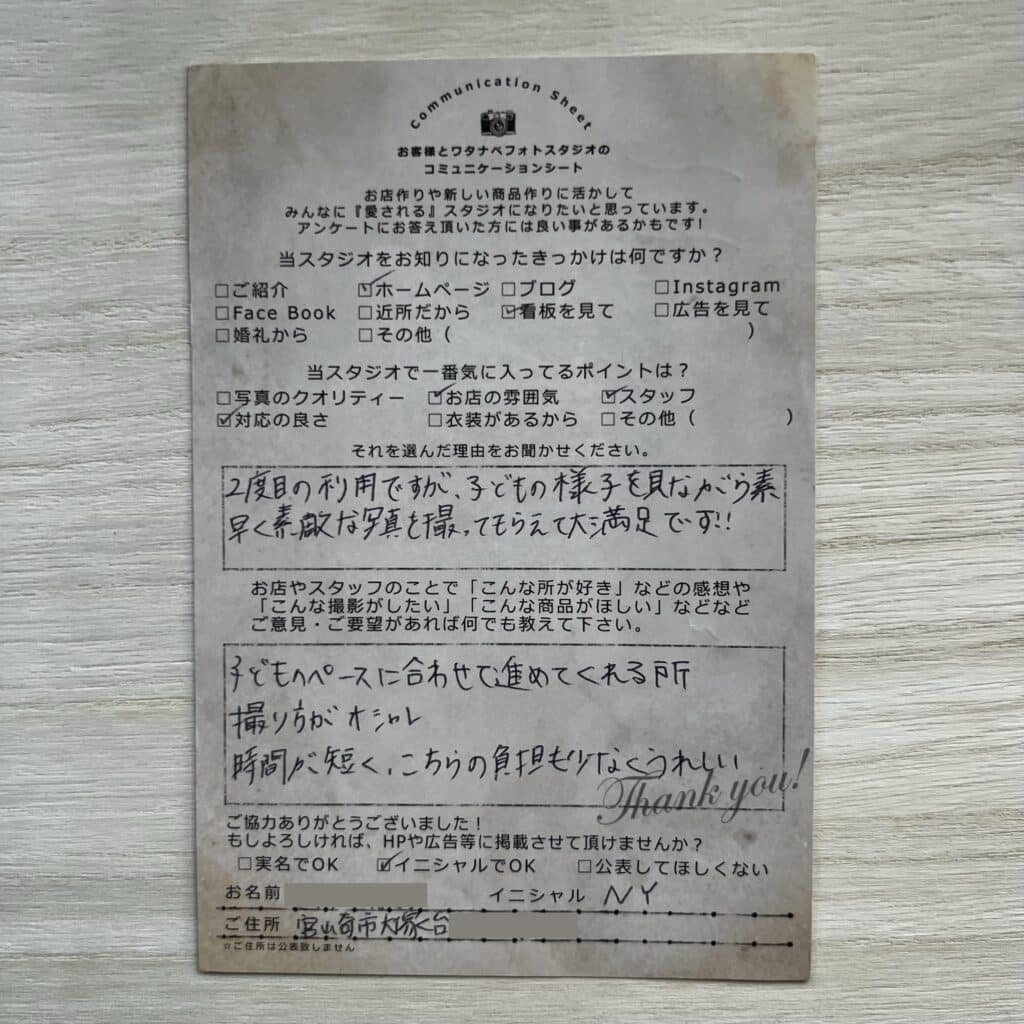 Communication Sheet
お客様とワタナベフォトスタジオの
コミュニケーションシート
お店作りや新しい商品作りに活かして
みんなに『愛される』スタジオになりたいと思っています。
アンケートにお答え頂いた方には良い事があるかもです!
当スタジオをお知りになったきっかけは何ですか？
□ご紹介 ☑ホームページ □ブログ □Instagram
□Face Book □近所だから ☑看板を見て □広告を見て
□婚礼から □その他（ ）
当スタジオで一番気に入ってるポイントは？
□写真のクオリティー ☑お店の雰囲気 ☑スタッフ
☑対応の良さ □衣装があるから □その他（ ）
それを選んだ理由をお聞かせください。
2度目の利用ですが、子どもの様子を見ながら素
早く素敵な写真を撮ってもらえて大満足です!!
お店やスタッフのことで「こんな所が好き」などの感想や
「こんな撮影がしたい」「こんな商品がほしい」などなど
ご意見・ご要望があれば何でも教えて下さい。
子どものペースに合わせて進めてくれる所
撮り方がオシャレ
時間が短く、こちらの負担も少なくうれしい
Thank you!
ご協力ありがとうございました！
もしよろしければ、HPや広告等に掲載させて頂けませんか？
□実名でOK ☑イニシャルでOK □公表してほしくない
お名前 イニシャル NY
ご住所 宮崎市大塚台
☆ご住所は公表致しません